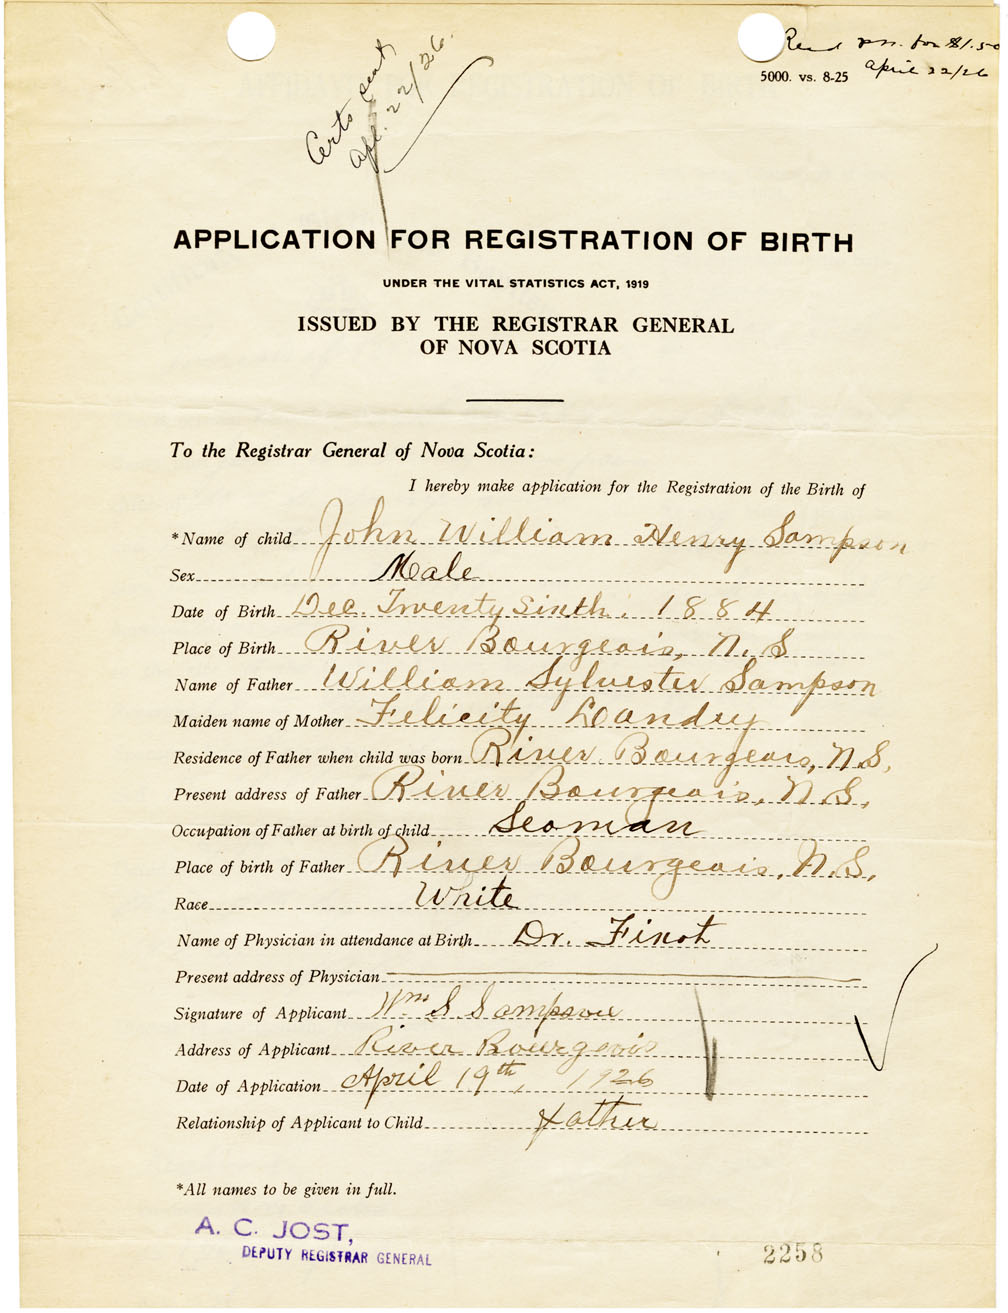 Certs sent
Apl. 22/26.
for $1.50
5000. vs. 8-25 April 22/26
APPLICATION FOR REGISTRATION OF BIRTH
UNDER THE VITAL STATISTICS ACT, 1919
ISSUED BY THE REGISTRAR GENERAL
OF NOVA SCOTIA
To the Registrar General of Nova Scotia:
I hereby make application for the Registration of the Birth of
*Name of child John William Henry Sampson
Sex Male
Date of Birth Dec. Twenty Sixth. 1884
Place of Birth River Bourgeois, N.S
Name of Father William Sylvester Sampson
Maiden name of Mother Felicity Landry
Residence of Father when child was born River Bourgeois, N.S.
Present address of Father River Bourgeois, N.S.
Occupation of Father at birth of child Seaman
Place of birth of Father River Bourgeois, N.S.
Race White
Name of Physician in attendance at Birth Dr. Finot
Present address of Physician
Signature of Applicant Wm S Sampson
Address of Applicant River Bourgeois
Date of Application April 19th, 1926
Relationship of Applicant to Child father
*All names to be given in full.
A. C. JOST,
DEPUTY REGISTRAR GENERAL
2258